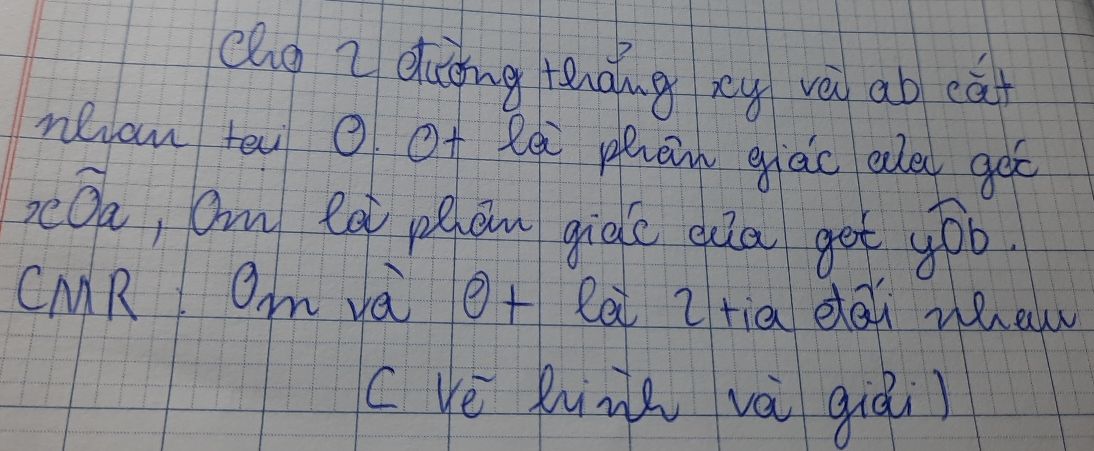 Cho 2 đường thẳng xy và ab cắt
nhau tại O. Ot là phân giác của góc
xÔa, Om là phân giác của góc yÔb.
CMR : Om và Ot là 2 tia đối nhau
( Vẽ hình và giải )